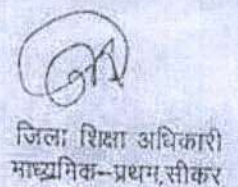 जिला शिक्षा अधिकारी
माध्यमिक–प्रथम,सीकर